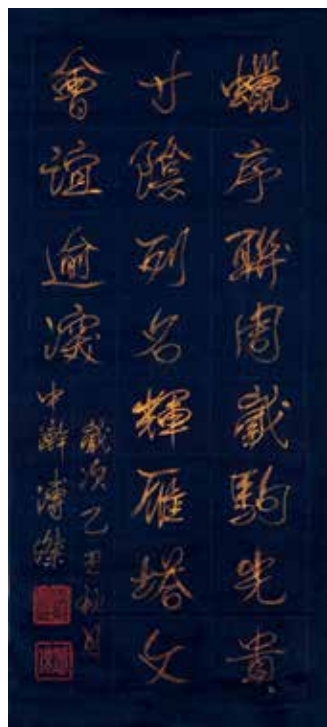 蠟序聯周歲駒光貴
寸陰列名輝雁塔文
會誼逾深
歲次乙丑秋月
中澣溥傑